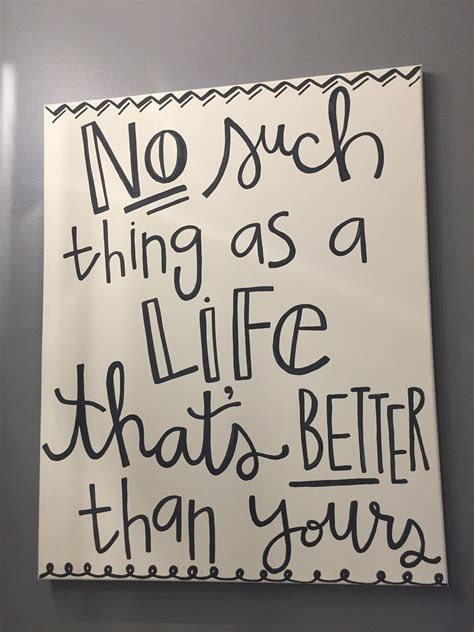 No such
thing as a
LiFe
that's BETTER
than yours